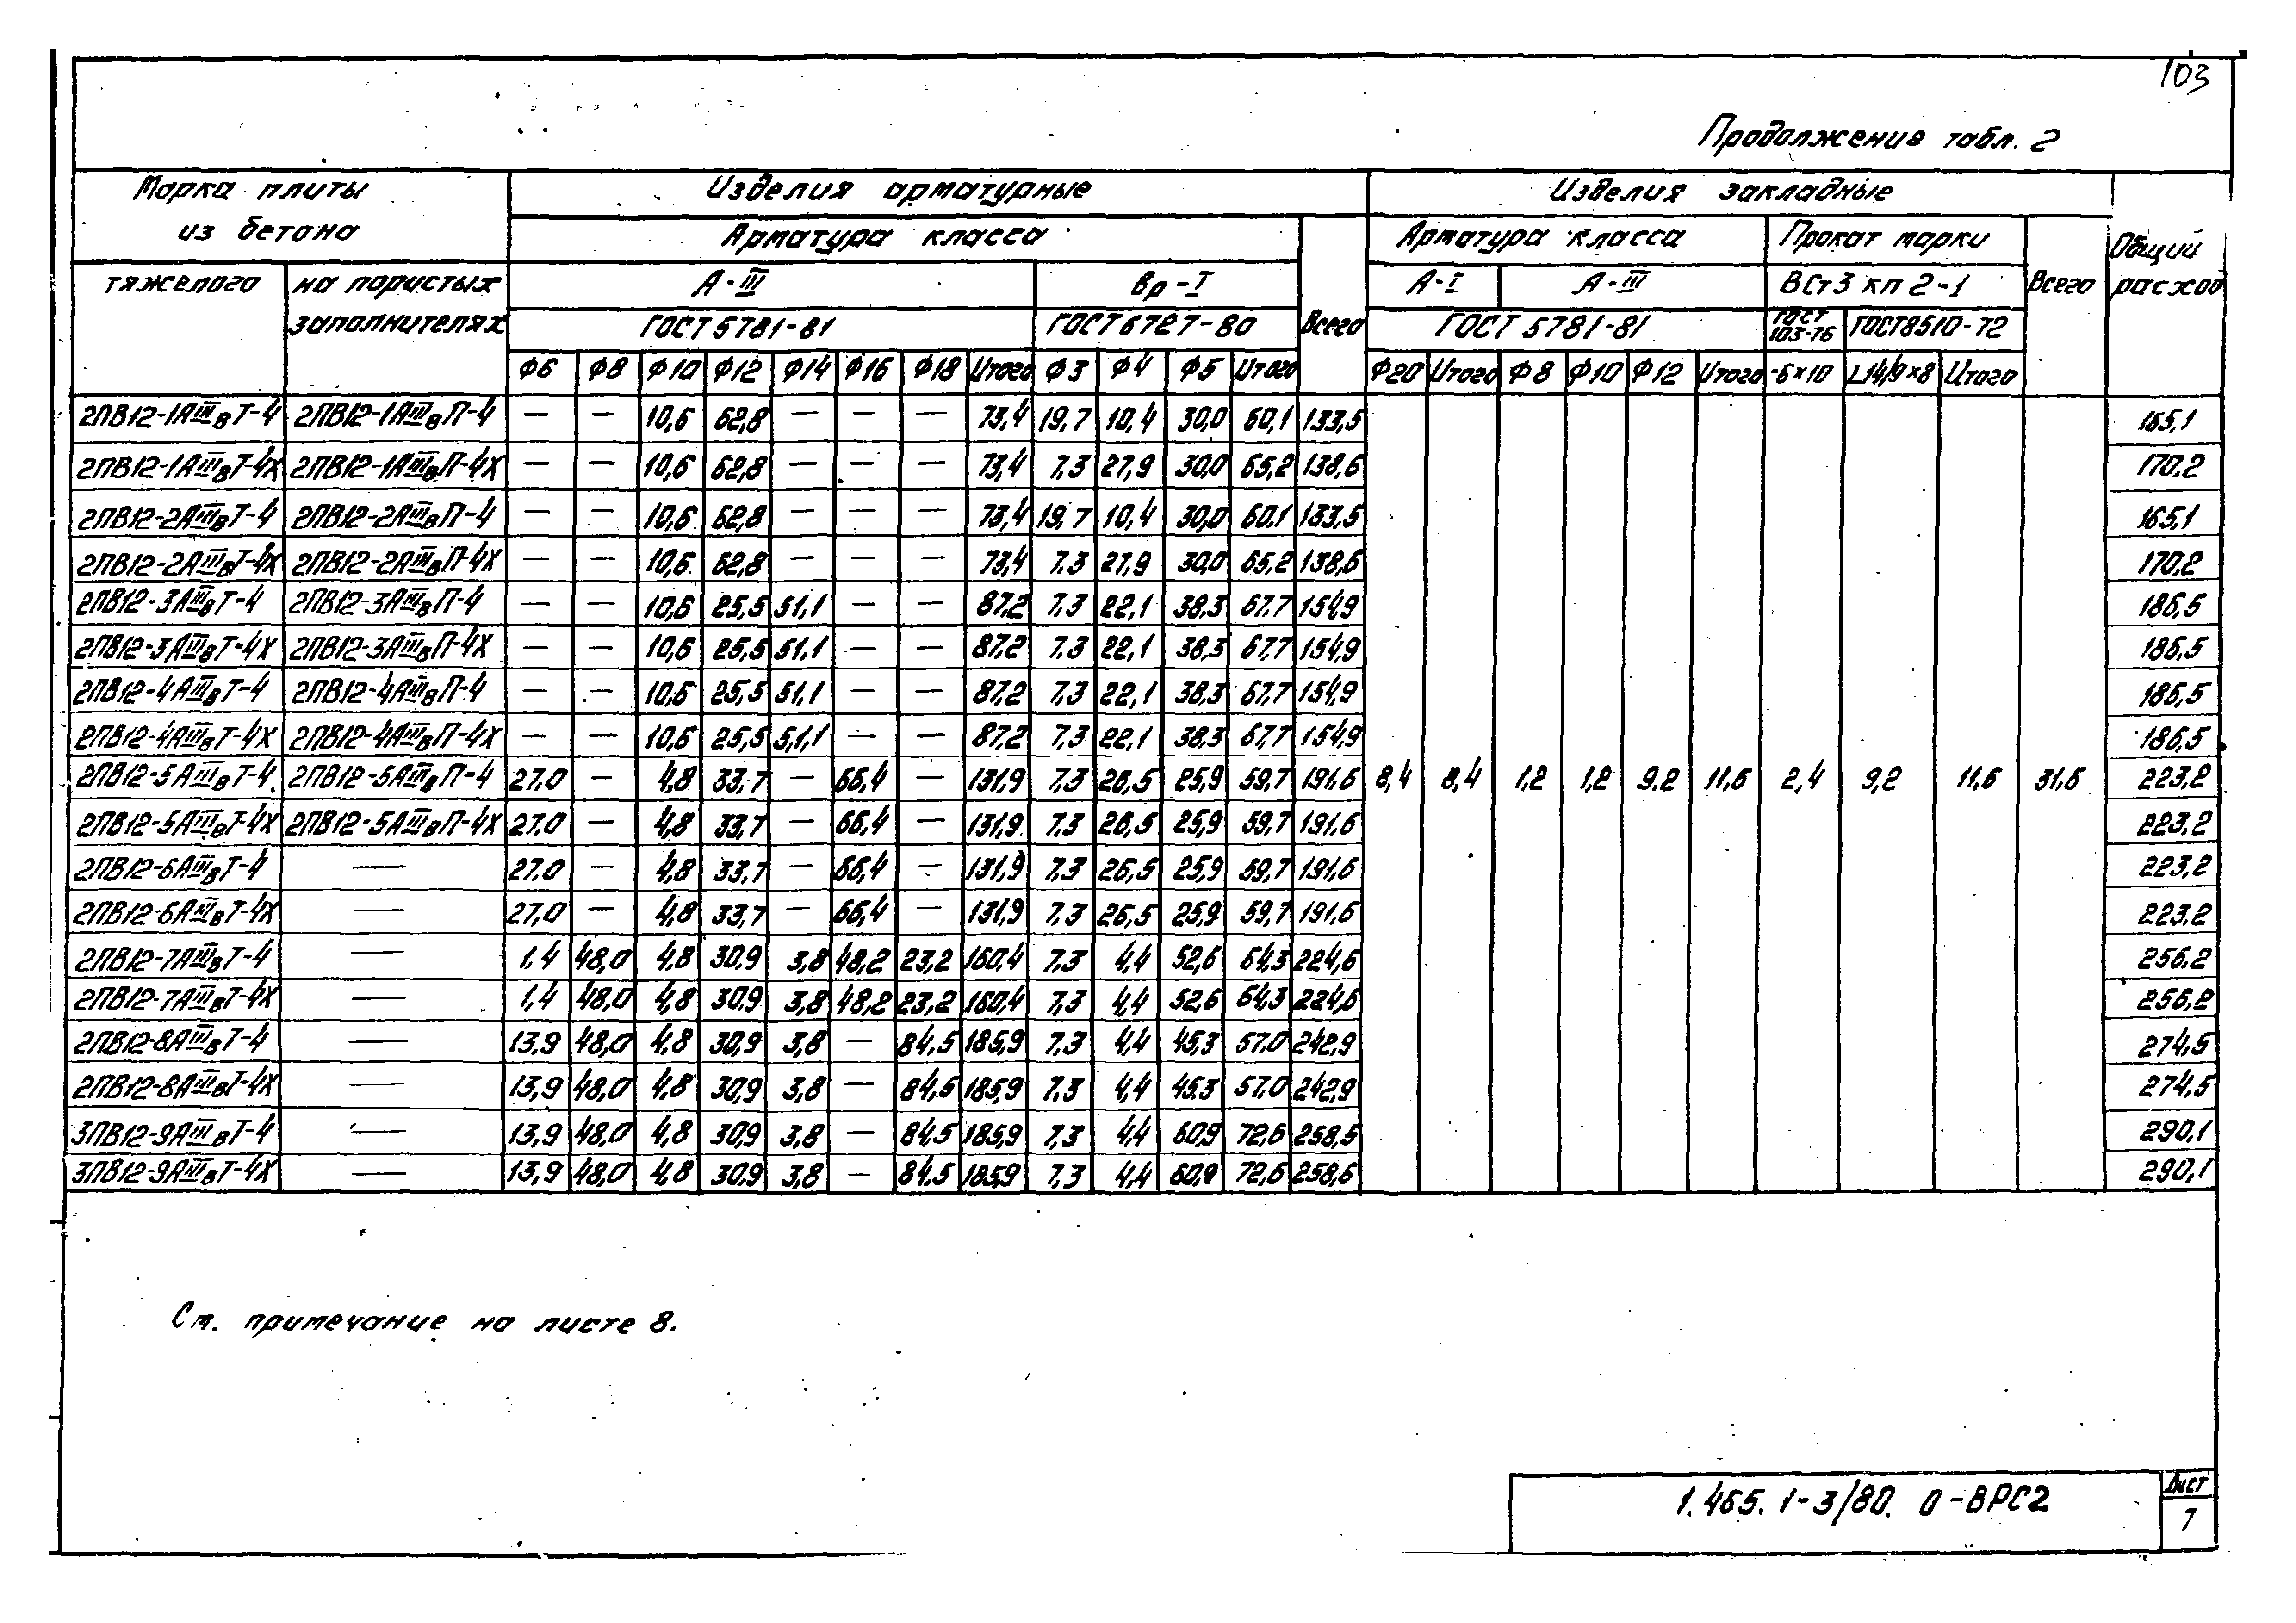 103
Продолжение табл. 2
Марка плиты из бетона Изделия арматурные Изделия закладные Общий расход
Арматура класса Всего Арматура класса Прокат марки Всего
тяжелого на пористых заполнителях А-III Вр-I А-I А-III ВСт3 кп 2-1
ГОСТ 5781-81 ГОСТ 6727-80 ГОСТ 5781-81 ГОСТ 103-76 ГОСТ 8510-72
Ф6 Ф8 Ф10 Ф12 Ф14 Ф16 Ф18 Итого Ф3 Ф4 Ф5 Итого Ф20 Итого Ф8 Ф10 Ф12 Итого -6×10 L14/9×8 Итого
2ПВ12-1АIIIвТ-4 2ПВ12-1АIIIвП-4 — — 10,6 62,8 — — — 73,4 19,7 10,4 30,0 60,1 133,5 165,1
2ПВ12-1АIIIвТ-4Х 2ПВ12-1АIIIвП-4Х — — 10,6 62,8 — — — 73,4 7,3 27,9 30,0 65,2 138,6 170,2
2ПВ12-2АIIIвТ-4 2ПВ12-2АIIIвП-4 — — 10,6 62,8 — — — 73,4 19,7 10,4 30,0 60,1 133,5 165,1
2ПВ12-2АIIIвТ-4Х 2ПВ12-2АIIIвП-4Х — — 10,6 62,8 — — — 73,4 7,3 27,9 30,0 65,2 138,6 170,2
2ПВ12-3АIIIвТ-4 2ПВ12-3АIIIвП-4 — — 10,6 25,5 51,1 — — 87,2 7,3 22,1 38,3 67,7 154,9 186,5
2ПВ12-3АIIIвТ-4Х 2ПВ12-3АIIIвП-4Х — — 10,6 25,5 51,1 — — 87,2 7,3 22,1 38,3 67,7 154,9 186,5
2ПВ12-4АIIIвТ-4 2ПВ12-4АIIIвП-4 — — 10,6 25,5 51,1 — — 87,2 7,3 22,1 38,3 67,7 154,9 186,5
2ПВ12-4АIIIвТ-4Х 2ПВ12-4АIIIвП-4Х — — 10,6 25,5 51,1 — — 87,2 7,3 22,1 38,3 67,7 154,9 186,5
2ПВ12-5АIIIвТ-4 2ПВ12-5АIIIвП-4 27,0 — 4,8 33,7 — 66,4 — 131,9 7,3 26,5 25,9 59,7 191,6 8,4 8,4 1,2 1,2 9,2 11,6 2,4 9,2 11,6 31,6 223,2
2ПВ12-5АIIIвТ-4Х 2ПВ12-5АIIIвП-4Х 27,0 — 4,8 33,7 — 66,4 — 131,9 7,3 26,5 25,9 59,7 191,6 223,2
2ПВ12-6АIIIвТ-4 — 27,0 — 4,8 33,7 — 66,4 — 131,9 7,3 26,5 25,9 59,7 191,6 223,2
2ПВ12-6АIIIвТ-4Х — 27,0 — 4,8 33,7 — 66,4 — 131,9 7,3 26,5 25,9 59,7 191,6 223,2
2ПВ12-7АIIIвТ-4 — 1,4 48,0 4,8 30,9 3,8 48,2 23,2 160,4 7,3 4,4 52,6 64,3 224,6 256,2
2ПВ12-7АIIIвТ-4Х — 1,4 48,0 4,8 30,9 3,8 48,2 23,2 160,4 7,3 4,4 52,6 64,3 224,6 256,2
2ПВ12-8АIIIвТ-4 — 13,9 48,0 4,8 30,9 3,8 — 84,5 185,9 7,3 4,4 45,3 57,0 242,9 274,5
2ПВ12-8АIIIвТ-4Х — 13,9 48,0 4,8 30,9 3,8 — 84,5 185,9 7,3 4,4 45,3 57,0 242,9 274,5
3ПВ12-9АIIIвТ-4 — 13,9 48,0 4,8 30,9 3,8 — 84,5 185,9 7,3 4,4 60,9 72,6 258,5 290,1
3ПВ12-9АIIIвТ-4Х — 13,9 48,0 4,8 30,9 3,8 — 84,5 185,9 7,3 4,4 60,9 72,6 258,6 290,1
См. примечание на листе 8.
1.465.1-3/80. 0-ВРС2
Лист
7